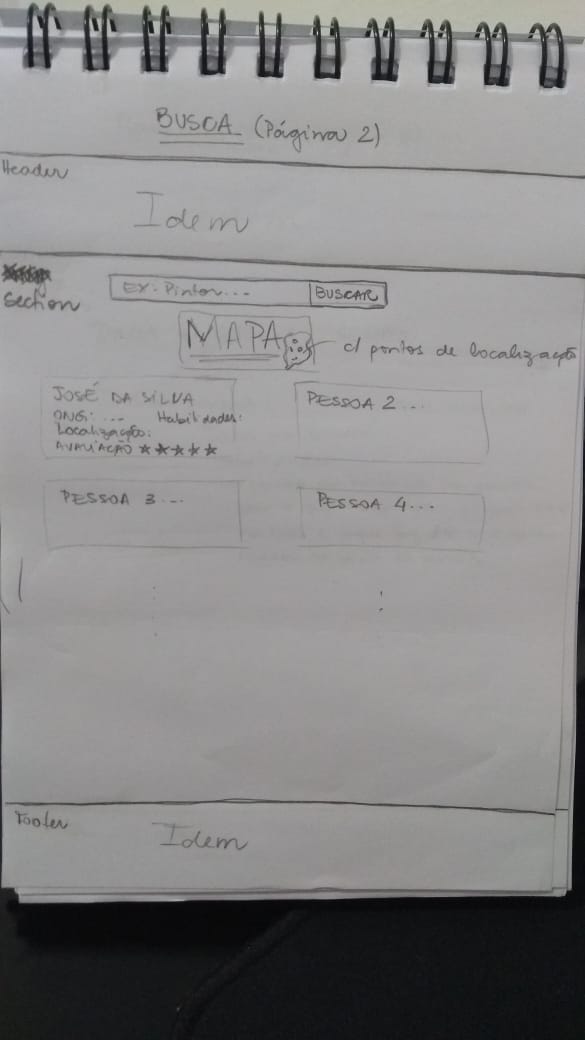 BUSCA (Página 2)
Header
Idem
Section
Ex: Pintor... BUSCAR
MAPA c/ pontos de localização
JOSÉ DA SILVA
ONG: ... Habilidades:
Localização:
AVALIAÇÃO ★★★★★
PESSOA 2...
PESSOA 3...
PESSOA 4...
Footer
Idem